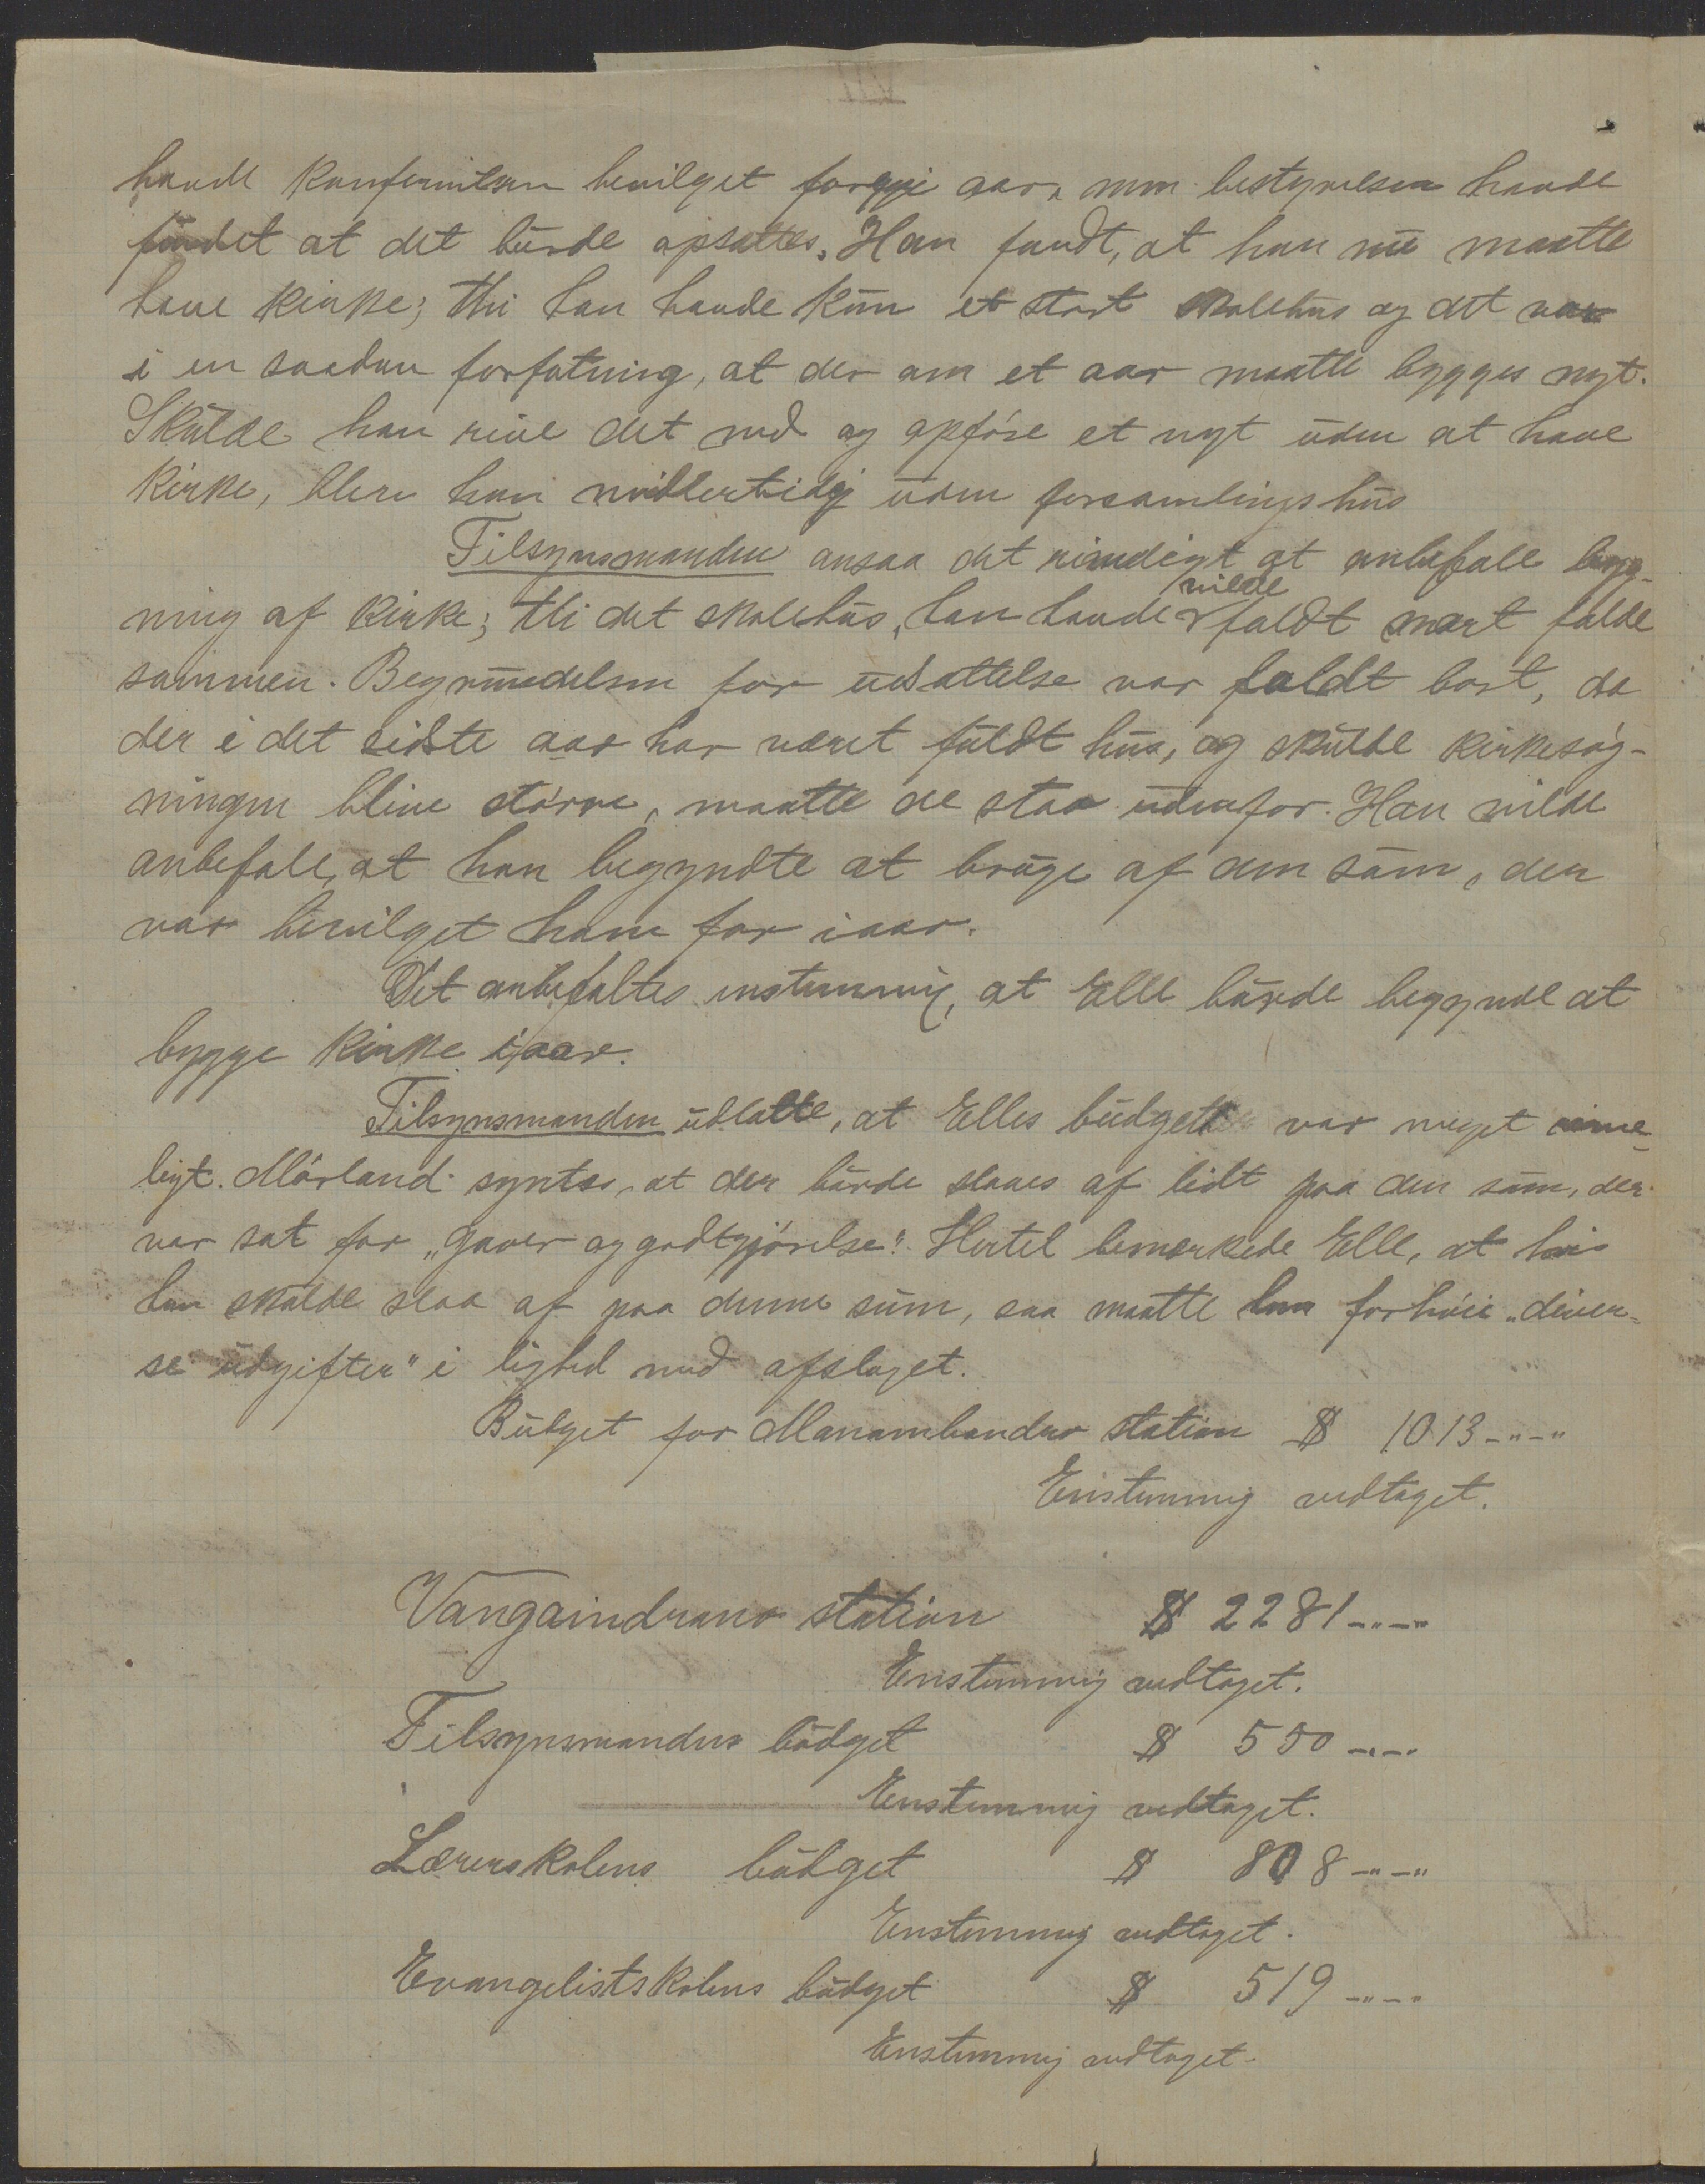 havde konferentsen bevilget forrige aar, men bestyrelsen havde
fundet at det burde opsættes. Han fandt, at han nu maatte
have kirke; thi han havde kun et stort skolehus og det var
i en saadan forfatning, at der om et aar maatte bygges nyt.
Skulde han rive det ned og opføre et nyt uden at have
kirke, blev han midlertidig uden forsamlingshus
Tilsynsmanden ansaa det nødvendigt at anbefale byg-
ning af kirke; thi det skolehus, han havde vilde snart falde
sammen. Begrundelsen for udsættelse var faldt bort, da
der i det sidste aar har været fuldt hus, og skulde kirkesøg-
ningen blive større, maatte de staa udenfor. Han vilde
anbefale, at han begyndte at bruge af den sum, der
var bevilget ham for iaar.
Det anbefaltes enstemmig, at Elle burde begynde at
bygge kirke iaar.
Tilsynsmanden udtalte, at Elles budget var meget rime-
ligt. Mørland syntes, at der burde slaaes af lidt paa den sum, der
var sat for „gaver og godtgjørelse". Hertil bemerkede Elle, at hvis
han skulde slaa af paa denne sum, saa maatte han forhøie „diver-
se udgifter" i lighed med afslaget.
Budget for Manambondro station $ 1013-"-"
Enstemmig vedtaget.
Vangaindrano station $ 2281-"-"
Enstemmig vedtaget.
Tilsynsmandens budget $ 550-"-"
Enstemmig vedtaget.
Lærerskolens budget $ 808-"-"
Enstemmig vedtaget.
Evangelistskolens budget $ 519-"-"
Enstemmig vedtaget.